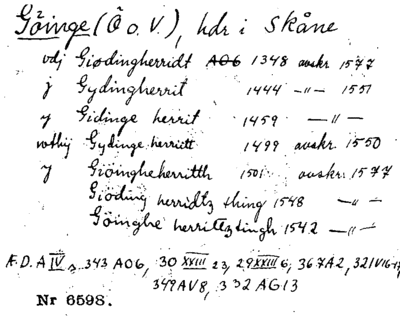 Göinge (Ö o. V.), hdr i Skåne
vdj Giødingherridt A06 1348 avskr 1577
j Gydingherrit 1444 —"— 1551
y Gidinge herrit 1459 —"—
Gydinge herriett 1499 avskr. 1550
y Giöingheherritth 1501 avskr. 1577
Giöding herridtz thing 1548 —"—
Göinghe herritztingh 1542 —"—
Æ.D. A IV, 343 A06, 30 XXIII 23, 29 XXIII 6, 367A2, 321
349AV8, 332 AG13
Nr 6598.